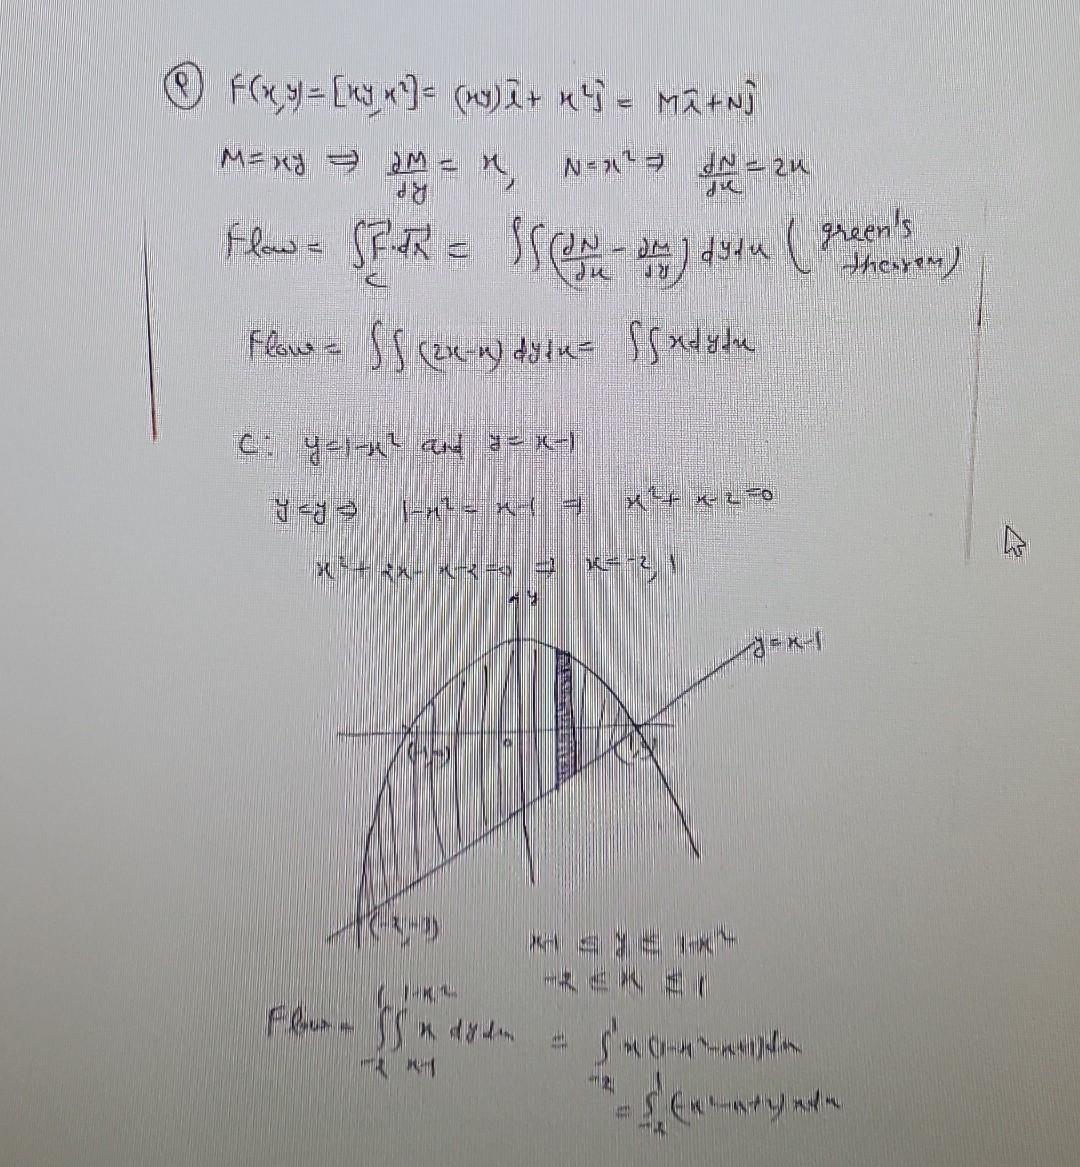 (9) F(x,y) = [xy, x²] = (xy)î + x²ĵ = Mî + Nĵ
M = xy ⇒ ∂M/∂y = x, N = x² ⇒ ∂N/∂x = 2x
Flow = ∫_C F⃗·dr⃗ = ∬(∂N/∂x - ∂M/∂y) dydx (green's theorem)
Flow = ∬ (2x-x) dydx = ∬ x dydx
C: y = 1-x² and y = x-1
y = y ⇒ 1-x² = x-1 ⇒ x² + x-2 = 0
x² + 2x - x-2 = 0 ⇒ x = -2, 1
y
y = x-1
(-1,0) 0 (1,0)
(-2,-3)
x-1 ≤ y ≤ 1-x²
-2 ≤ x ≤ 1
Flow = ∫_{-2}^{1} ∫_{x-1}^{1-x²} x dydx = ∫_{-2}^{1} x(1-x²-x+1)dx
= ∫_{-2}^{1} (-x²-x+2) x dx